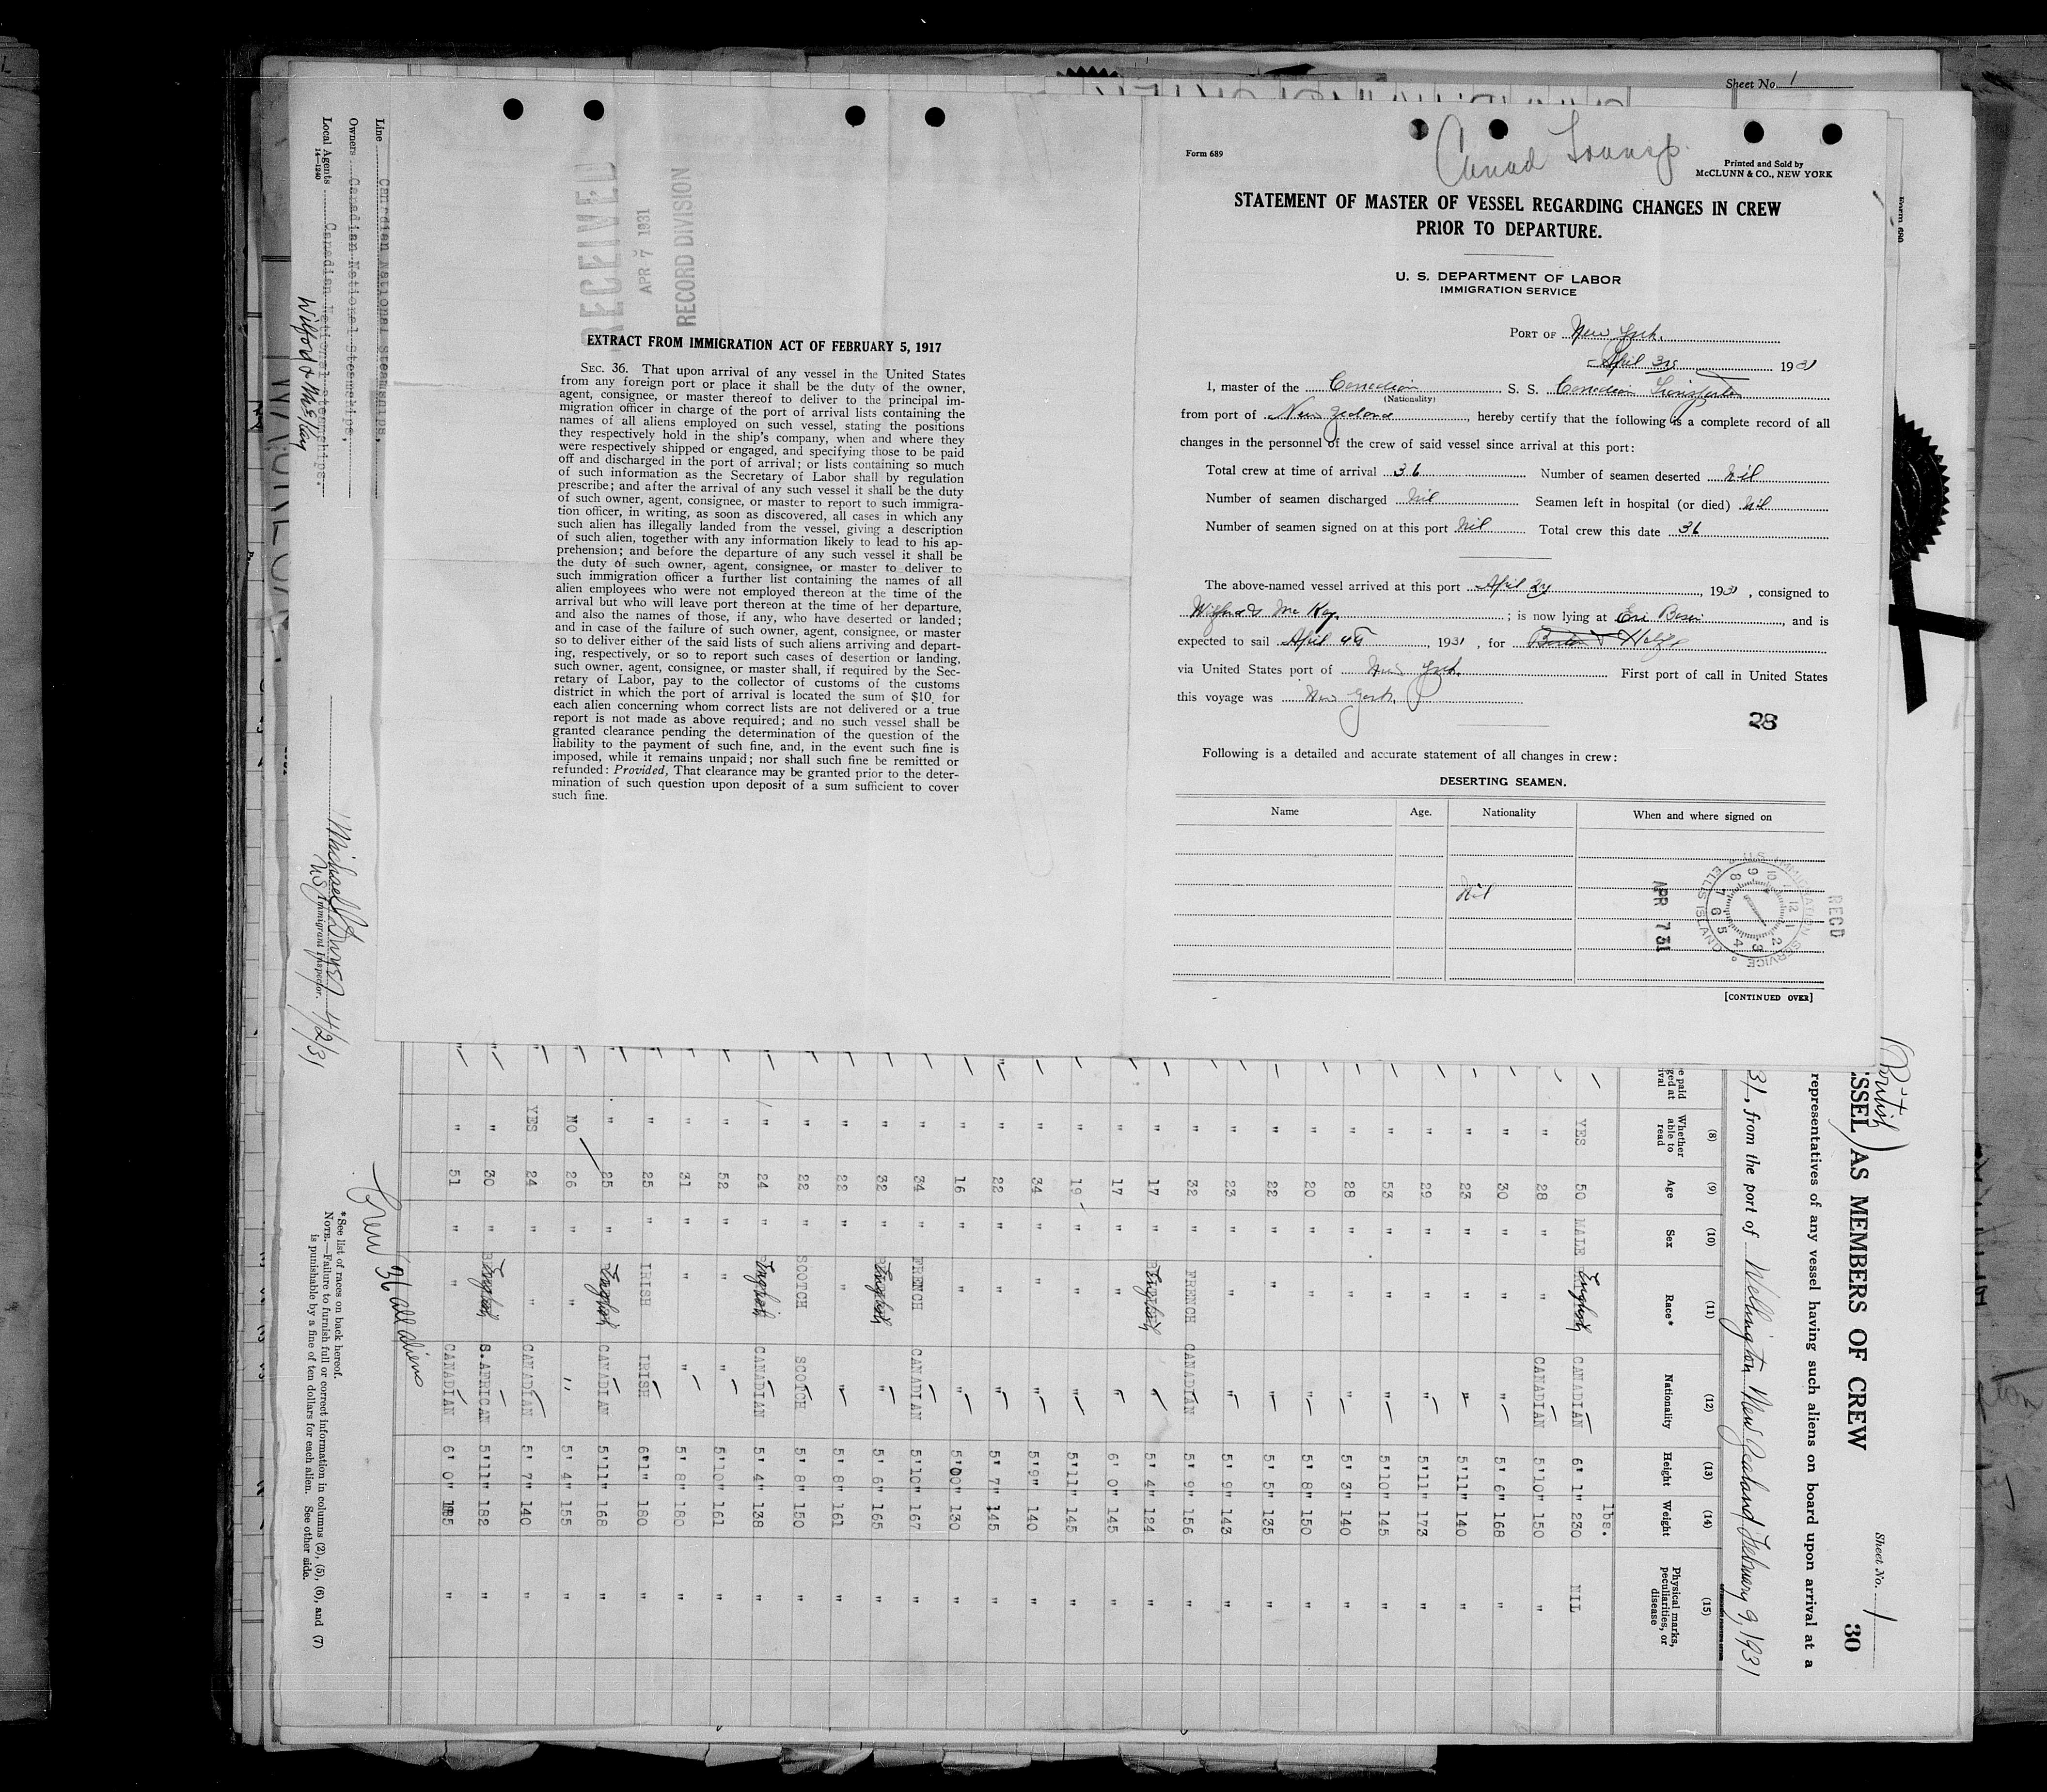 Sheet No. 1
Form 689
Canad Transp.
Printed and Sold by
McCLUNN & CO., NEW YORK
STATEMENT OF MASTER OF VESSEL REGARDING CHANGES IN CREW
PRIOR TO DEPARTURE.
U. S. DEPARTMENT OF LABOR
IMMIGRATION SERVICE
PORT OF New York.
April 1931
I, master of the Canadian S. S. Canadian
(Nationality)
from port of New Zealand, hereby certify that the following is a complete record of all
changes in the personnel of the crew of said vessel since arrival at this port:
Total crew at time of arrival 36 Number of seamen deserted Nil
Number of seamen discharged Nil Seamen left in hospital (or died) Nil
Number of seamen signed on at this port Nil Total crew this date 36
The above-named vessel arrived at this port April 1931, consigned to
Mc Kay. ; is now lying at Basin, and is
expected to sail April 1931, for
via United States port of New York. First port of call in United States
this voyage was New York.
28
Following is a detailed and accurate statement of all changes in crew:
DESERTING SEAMEN.
Name Age. Nationality When and where signed on
Nil
RECD
APR 7 31
U.S. IMMIGRATION SERVICE
ELLIS ISLAND
[CONTINUED OVER]
RECEIVED
APR 7 1931
RECORD DIVISION
EXTRACT FROM IMMIGRATION ACT OF FEBRUARY 5, 1917
SEC. 36. That upon arrival of any vessel in the United States
from any foreign port or place it shall be the duty of the owner,
agent, consignee, or master thereof to deliver to the principal im-
migration officer in charge of the port of arrival lists containing the
names of all aliens employed on such vessel, stating the positions
they respectively hold in the ship's company, when and where they
were respectively shipped or engaged, and specifying those to be paid
off and discharged in the port of arrival; or lists containing so much
of such information as the Secretary of Labor shall by regulation
prescribe; and after the arrival of any such vessel it shall be the duty
of such owner, agent, consignee, or master to report to such immigra-
tion officer, in writing, as soon as discovered, all cases in which any
such alien has illegally landed from the vessel, giving a description
of such alien, together with any information likely to lead to his ap-
prehension; and before the departure of any such vessel it shall be
the duty of such owner, agent, consignee, or master to deliver to
such immigration officer a further list containing the names of all
alien employees who were not employed thereon at the time of the
arrival but who will leave port thereon at the time of her departure,
and also the names of those, if any, who have deserted or landed;
and in case of the failure of such owner, agent, consignee, or master
so to deliver either of the said lists of such aliens arriving and depart-
ing, respectively, or so to report such cases of desertion or landing,
such owner, agent, consignee, or master shall, if required by the Sec-
retary of Labor, pay to the collector of customs of the customs
district in which the port of arrival is located the sum of $10 for
each alien concerning whom correct lists are not delivered or a true
report is not made as above required; and no such vessel shall be
granted clearance pending the determination of the question of the
liability to the payment of such fine, and, in the event such fine is
imposed, while it remains unpaid; nor shall such fine be remitted or
refunded: Provided, That clearance may be granted prior to the deter-
mination of such question upon deposit of a sum sufficient to cover
such fine.
Form 680
Sheet No. 1
30
(British
SSEL) AS MEMBERS OF CREW
representatives of any vessel having such aliens on board upon arrival at a
31, from the port of Wellington New Zealand February 9, 1931
(8) (9) (10) (11) (12) (13) (14) (15)
Whether able to read Age Sex Race* Nationality Height Weight Physical marks, peculiarities, or disease
lbs.
YES 50 MALE English CANADIAN 6' 1" 230 NIL
" 28 " " CANADIAN 5'10" 150 "
" 30 " " " 5' 6" 168 "
" 23 " " " 5'11" 140 "
" 29 " " " 5'11" 173 "
" 53 " " " 5'10" 145 "
" 28 " " " 5' 3" 140 "
" 20 " " " 5' 8" 150 "
" 22 " " " 5' 5" 135 "
" 23 " " " 5' 9" 143 "
" 32 " FRENCH CANADIAN 5' 9" 156 "
" 17 " English " 5' 4" 124 "
" 17 " " " 6' 0" 145 "
" 19 " " " 5'11" 145 "
" 34 " " " 5'9" 140 "
" 22 " " " 5' 7" 145 "
" 16 " " " 5'00" 130 "
" 34 " FRENCH CANADIAN 5'10" 167 "
" 32 " English " 5' 6" 165 "
" 22 " " " 5' 8" 161 "
" 22 " SCOTCH SCOTCH 5' 8" 150 "
" 24 " English CANADIAN 5' 4" 138 "
" 52 " " " 5'10" 161 "
" 31 " " " 5' 8" 180 "
" 25 " IRISH IRISH 6'1" 180 "
" 25 " English CANADIAN 5'11" 168 "
NO 26 " " " 5' 4" 155 "
YES 24 " " CANADIAN 5' 7" 140 "
" 30 " English S.AFRICAN 5'11" 182 "
" 51 " " CANADIAN 6' 0" "
Crew 36 all aliens
* See list of races on back hereof.
NOTE.—Failure to furnish full or correct information in columns (2), (5), (6), and (7)
is punishable by a fine of ten dollars for each alien. See other side.
Line Canadian National Steamships,
Owners Canadian National Steamships,
Local Agents Canadian National Steamships.
14—1240
Wilford & McKay
Michael
US Immigrant Inspector. 4/2/31